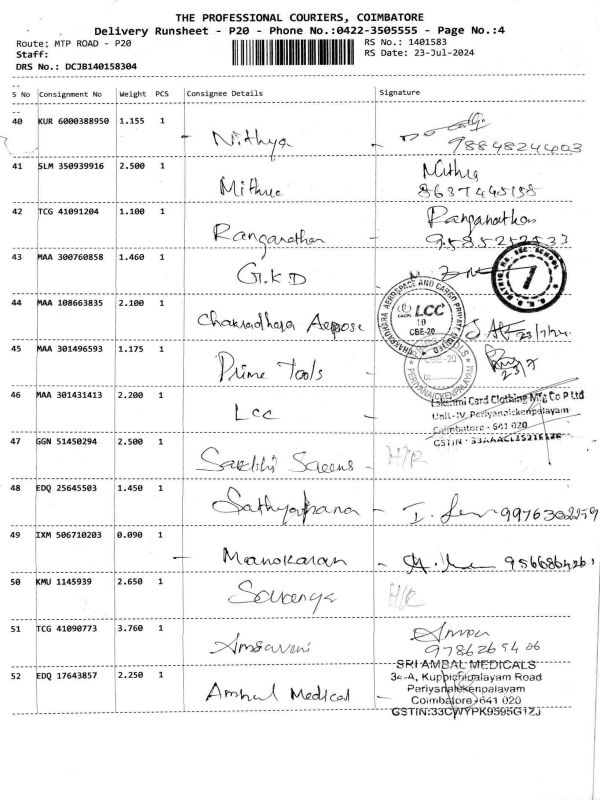 THE PROFESSIONAL COURIERS, COIMBATORE
Delivery Runsheet - P20 - Phone No.:0422-3505555 - Page No.:4
Route: MTP ROAD - P20 RS No.: 1401583
Staff: RS Date: 23-Jul-2024
DRS No.: DCJB140158304
S No Consignment No Weight PCS Consignee Details Signature
40 KUR 6000388950 1.155 1
- Nithya - 9884824403
41 SLM 350939916 2.500 1 Nithya
Mithue 8637445158
42 TCG 41091204 1.100 1 Ranganathan
Ranganathan - 9585252533
43 MAA 300760858 1.460 1
G.K.D
7
44 MAA 108663835 2.100 1
CHAKRADHARA AEROSPACE AND CARGO PRIVATE LIMITED
LCC
CBE-20
Chakradhara Aerpose 23/7/24
45 MAA 301496593 1.175 1
CBE-20
PERIYANAICKENPALAYAM
Prime Tools - 23/7
46 MAA 301431413 2.200 1
Lakshmi Card Clothing Mfg Co P Ltd
LCC - Unit-IV, Periyanaickenpalayam
Coimbatore - 641 020
47 GGN 51450294 2.500 1 GSTIN :
Sakthi Screens - H/R
48 EDQ 25645503 1.450 1
Sathyabama - 9976302259
49 IXM 506710203 0.090 1
- Manokaran -
50 KMU 1145939 2.650 1
Saranya H/R
51 TCG 41090773 3.760 1
Amsaveni 9786265406
52 EDQ 17643857 2.250 1
SRI AMBAL MEDICALS
34-A, Kuppichipalayam Road
Periyanaickenpalayam
Ambal Medical - Coimbatore-641 020
GSTIN:33CWYPK9595G1ZJ